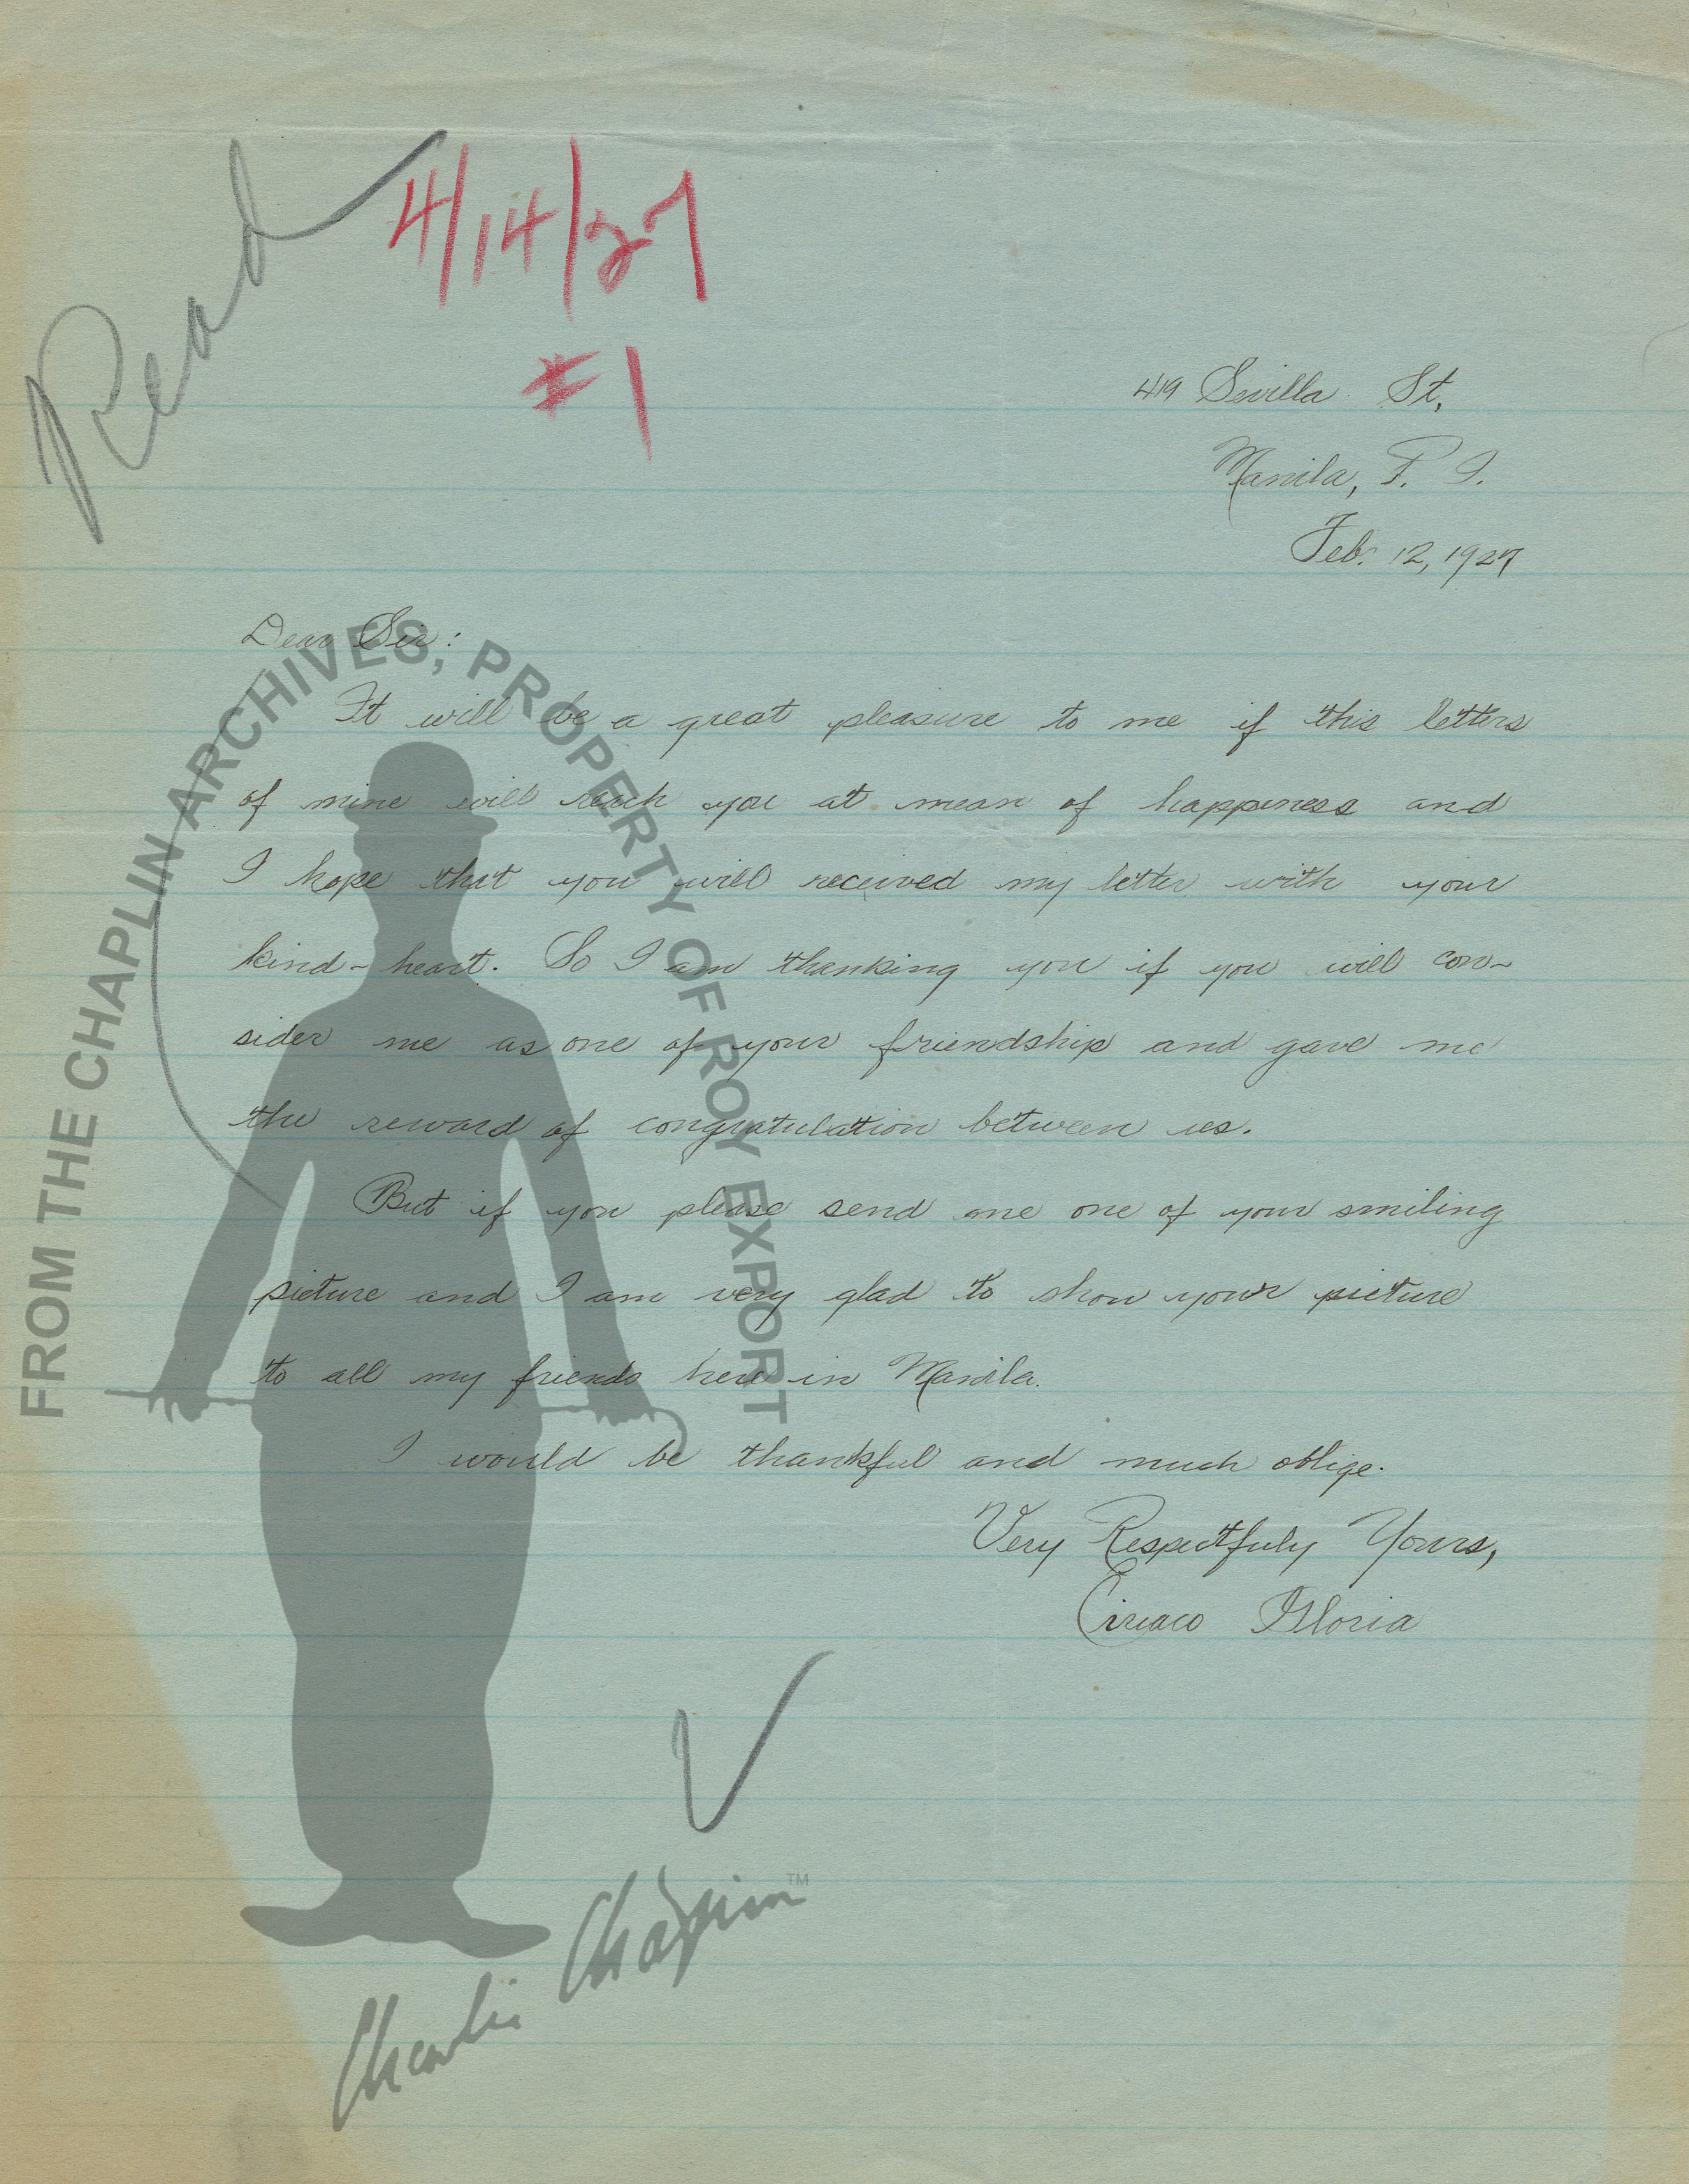 Read
4/14/27
#1
419 Sevilla St,
Manila, P. I.
Feb. 12, 1927
Dear Sir:
It will be a great pleasure to me if this letters
of mine will reach you at mean of happiness and
I hope that you will received my letter with your
kind-heart. So I am thanking you if you will con-
sider me as one of your friendship and gave me
the reward of congratulation between us.
But if you please send me one of your smiling
picture and I am very glad to show your picture
to all my friends here in Manila.
I would be thankful and much oblige.
Very Respectfuly Yours,
Ciriaco Gloria
FROM THE CHAPLIN ARCHIVES, PROPERTY OF ROY EXPORT
Charlie Chaplin™